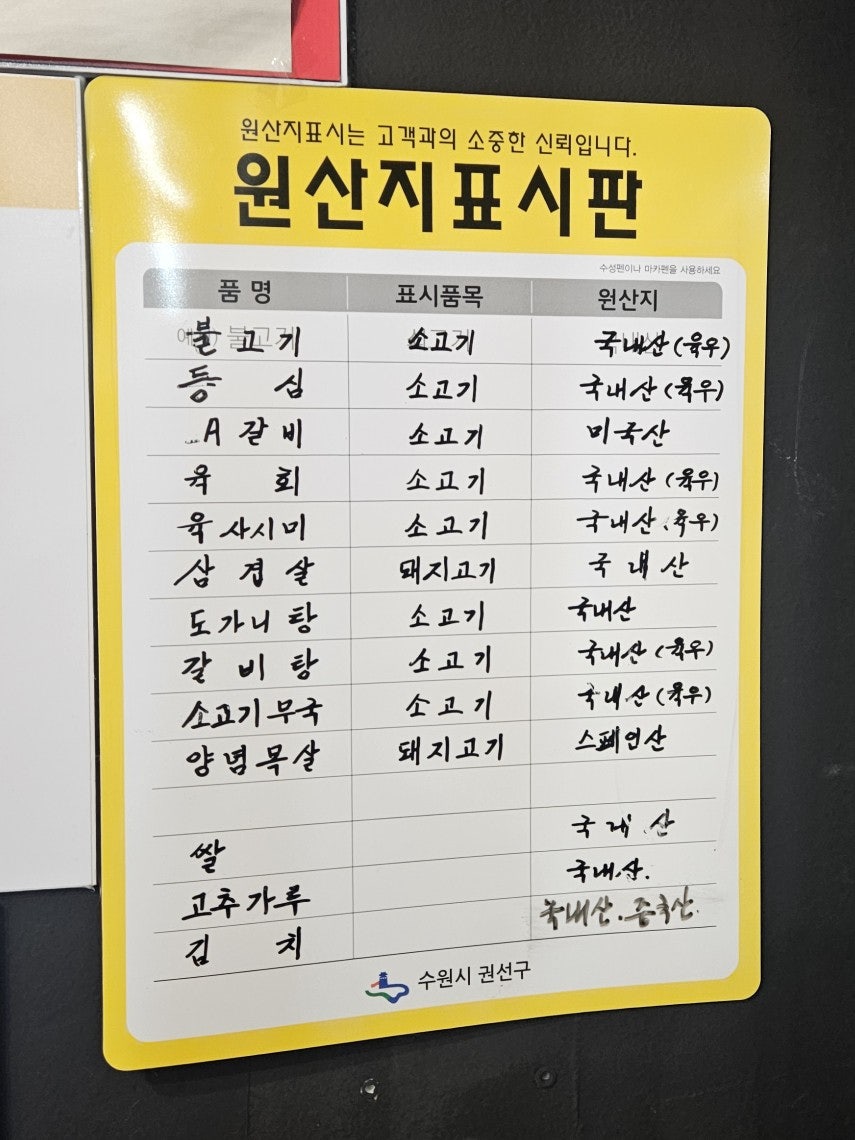 원산지표시는 고객과의 소중한 신뢰입니다.
원산지표시판
수성펜이나 마카펜을 사용하세요
품 명 표시품목 원산지
불고기 소고기 국내산(육우)
등 심 소고기 국내산(육우)
A 갈비 소고기 미국산
육 회 소고기 국내산(육우)
육사시미 소고기 국내산.육우)
삼겹살 돼지고기 국내산
도가니탕 소고기 국내산
갈비탕 소고기 국내산(육우)
소고기무국 소고기 국내산(육우)
양념목살 돼지고기 스페인산
쌀 국내산
고추가루 국내산.
김 치 국내산.중국산.
수원시 권선구